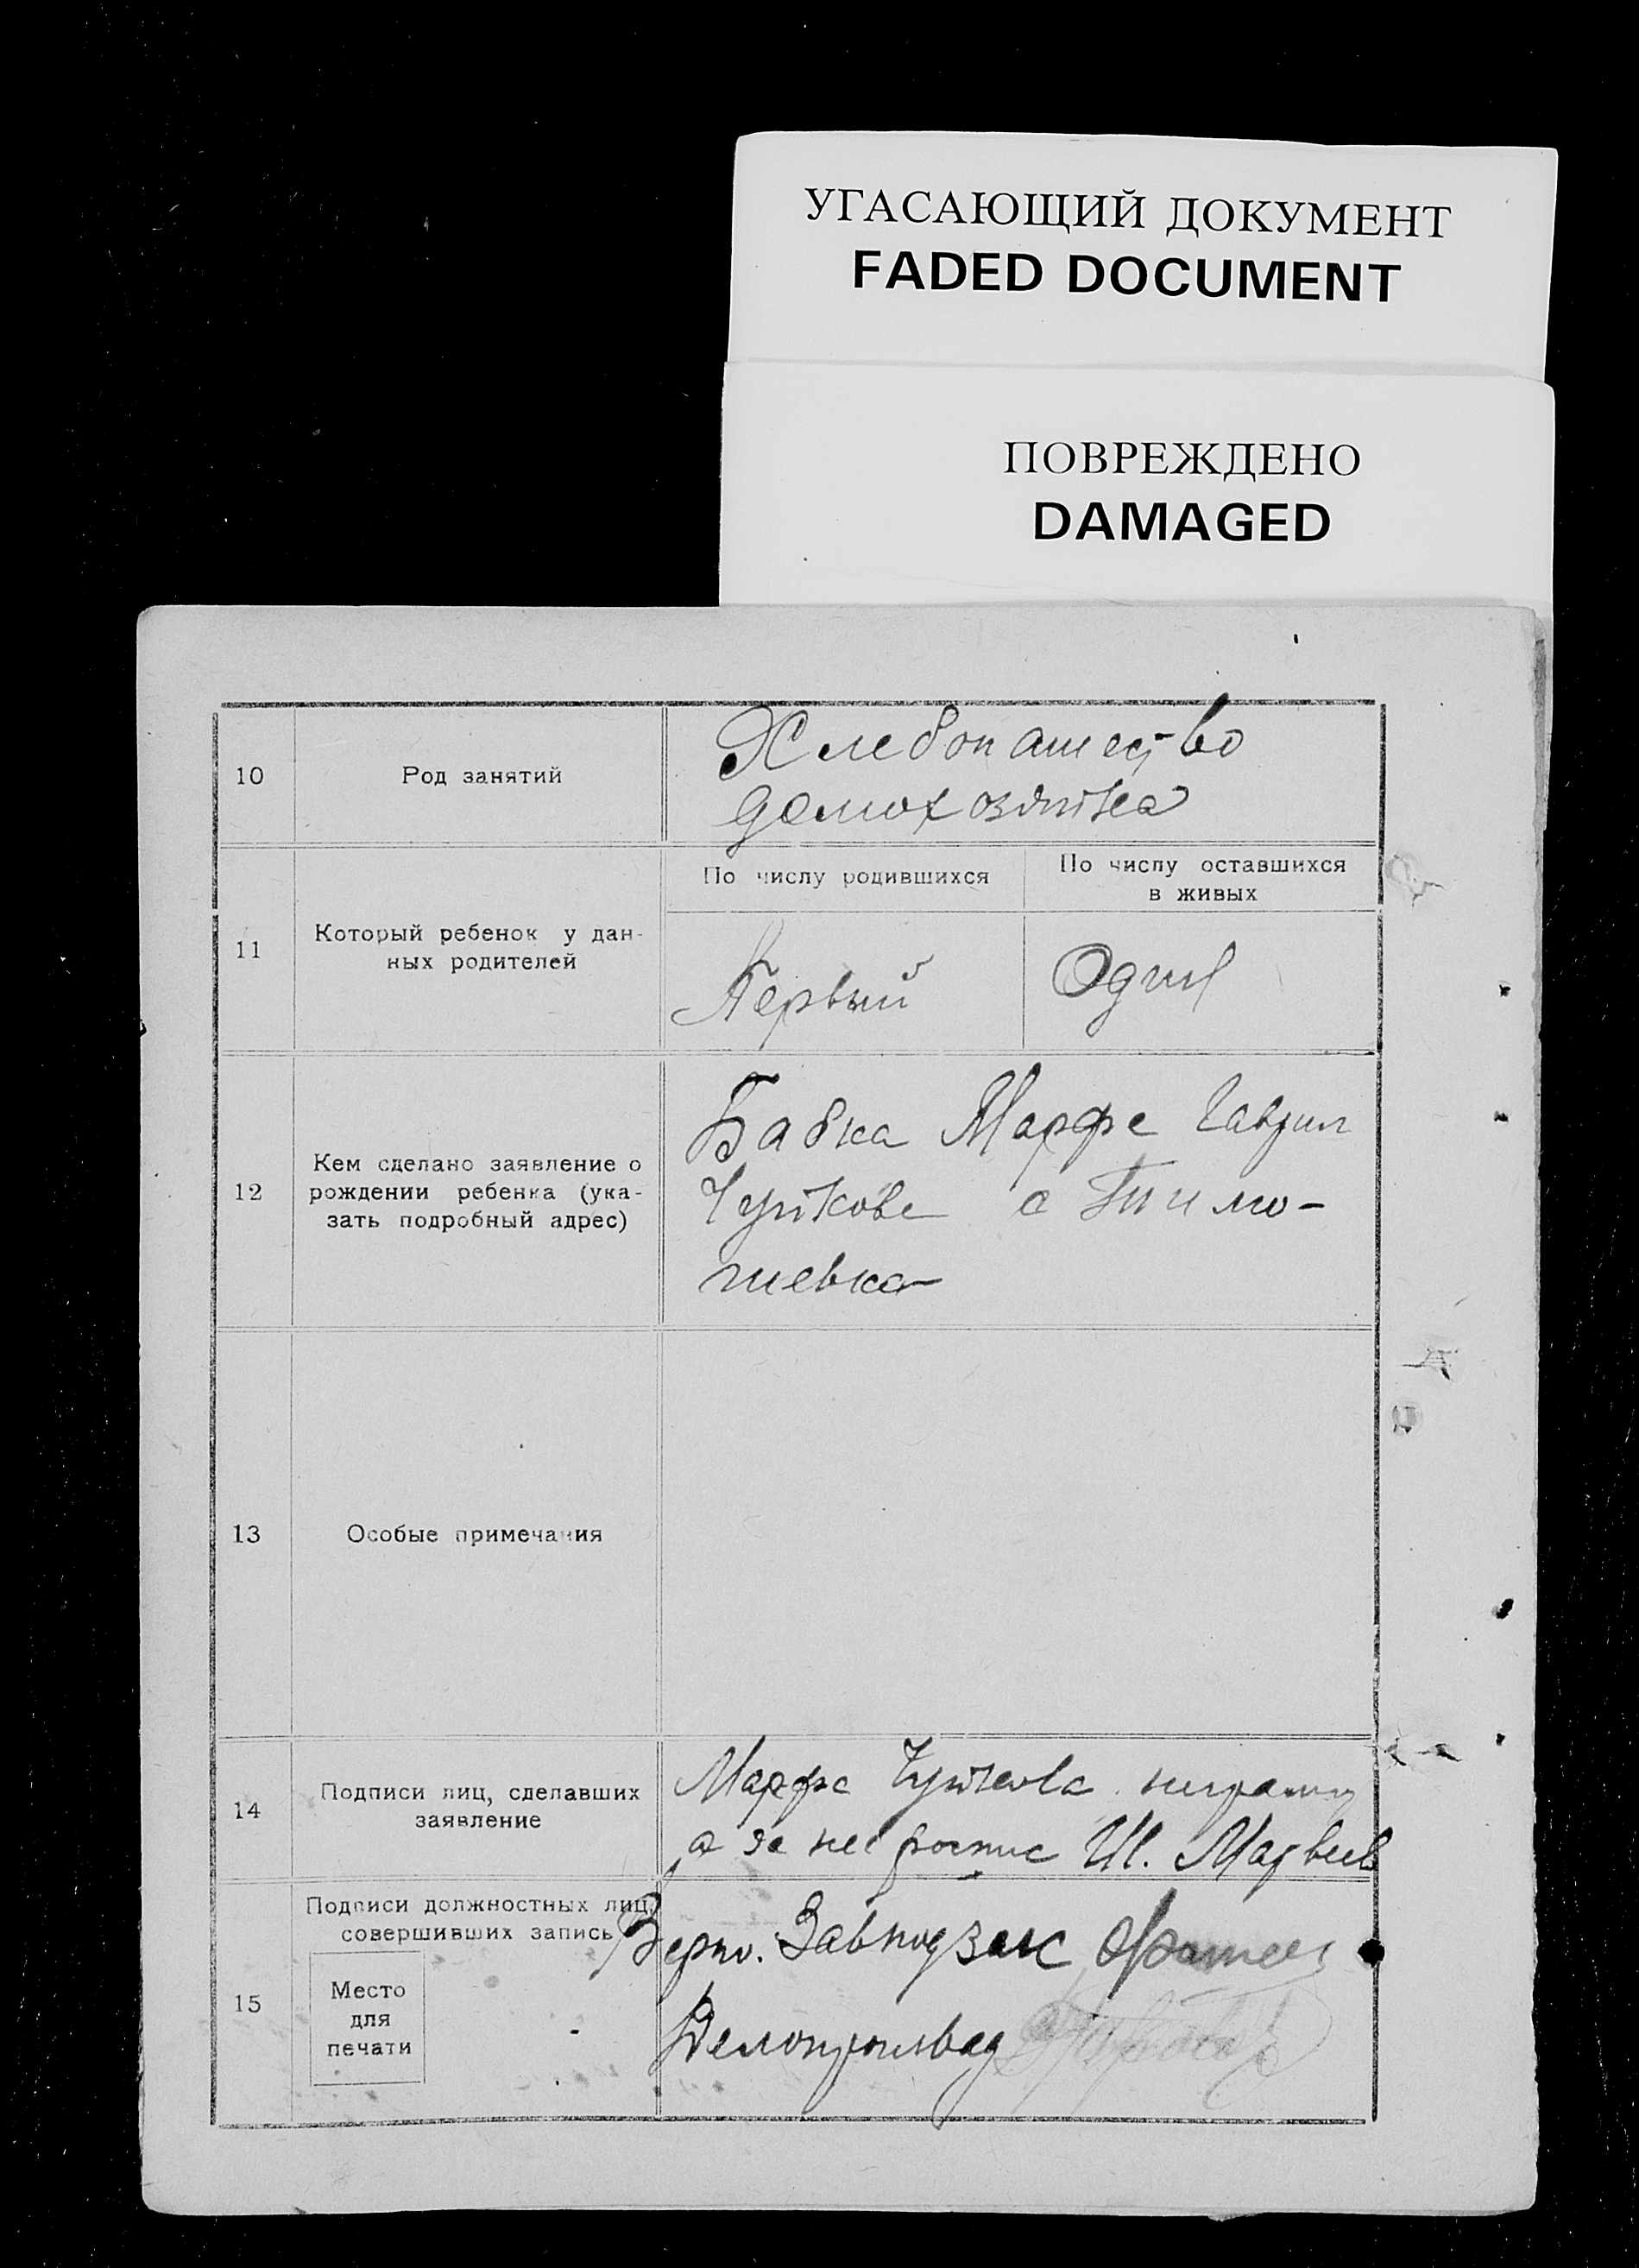 УГАСАЮЩИЙ ДОКУМЕНТ
FADED DOCUMENT
ПОВРЕЖДЕНО
DAMAGED
10
Род занятий
Хлебопашество
домохозяйка
11
Который ребенок у дан-
ных родителей
По числу родившихся
По числу оставшихся
в живых
Первый
Один
12
Кем сделано заявление о
рождении ребенка (ука-
зать подробный адрес)
Бабка Марфа Гаврил
Чуйкова с Тимо-
шевка
13
Особые примечания
14
Подписи лиц, сделавших
заявление
Марфа Чуйкова неграм
а за нее роспис
15
Подписи должностных лиц,
совершивших запись
Место
для
печати
Верно. Завподзагс
Делопроизвод